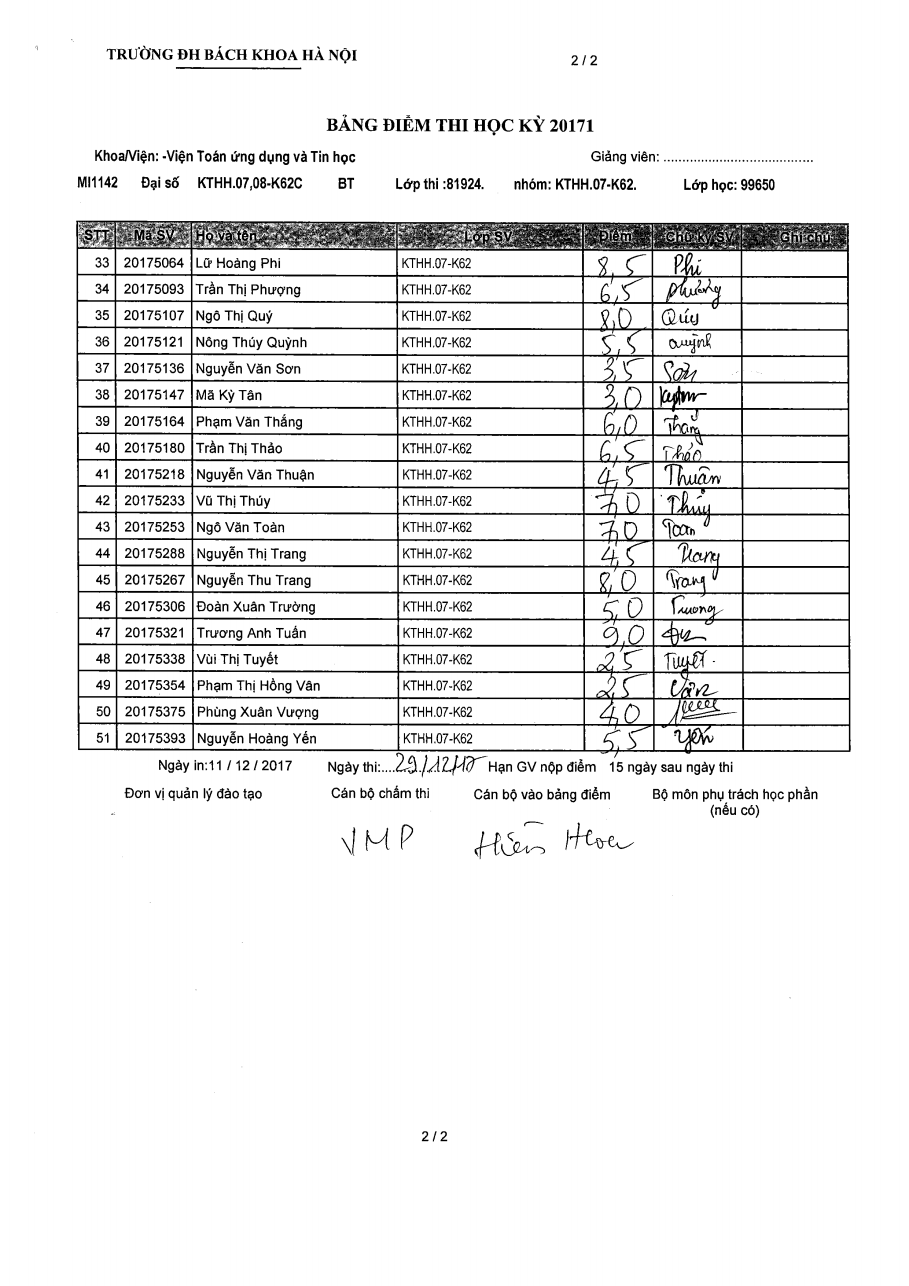 TRƯỜNG ĐH BÁCH KHOA HÀ NỘI 2 / 2
BẢNG ĐIỂM THI HỌC KỲ 20171
Khoa/Viện: -Viện Toán ứng dụng và Tin học Giảng viên: ........................................
MI1142 Đại số KTHH.07,08-K62C BT Lớp thi :81924. nhóm: KTHH.07-K62. Lớp học: 99650
STT Mã SV Họ và tên Lớp SV Điểm Chữ ký SV Ghi chú
33 20175064 Lữ Hoàng Phi KTHH.07-K62 8,5 Phi
34 20175093 Trần Thị Phượng KTHH.07-K62 6,5 Phượng
35 20175107 Ngô Thị Quý KTHH.07-K62 8,0 Qúy
36 20175121 Nông Thúy Quỳnh KTHH.07-K62 5,5 Quỳnh
37 20175136 Nguyễn Văn Sơn KTHH.07-K62 3,5 Sơn
38 20175147 Mã Kỳ Tân KTHH.07-K62 3,0
39 20175164 Phạm Văn Thắng KTHH.07-K62 6,0 Thắng
40 20175180 Trần Thị Thảo KTHH.07-K62 6,5 Thảo
41 20175218 Nguyễn Văn Thuận KTHH.07-K62 4,5 Thuân
42 20175233 Vũ Thị Thúy KTHH.07-K62 7,0 Thúy
43 20175253 Ngô Văn Toàn KTHH.07-K62 7,0 Toan
44 20175288 Nguyễn Thị Trang KTHH.07-K62 4,5 Trang
45 20175267 Nguyễn Thu Trang KTHH.07-K62 8,0 Trang
46 20175306 Đoàn Xuân Trường KTHH.07-K62 5,0 Trường
47 20175321 Trương Anh Tuấn KTHH.07-K62 9,0
48 20175338 Vùi Thị Tuyết KTHH.07-K62 2,5 Tuyết
49 20175354 Phạm Thị Hồng Vân KTHH.07-K62 2,5 Vân
50 20175375 Phùng Xuân Vượng KTHH.07-K62 4,0
51 20175393 Nguyễn Hoàng Yến KTHH.07-K62 5,5 Yến
Ngày in:11 / 12 / 2017 Ngày thi:....29/12/17 Hạn GV nộp điểm 15 ngày sau ngày thi
Đơn vị quản lý đào tạo Cán bộ chấm thi Cán bộ vào bảng điểm Bộ môn phụ trách học phần
(nếu có)
VMP Hiền Hoa
2 / 2